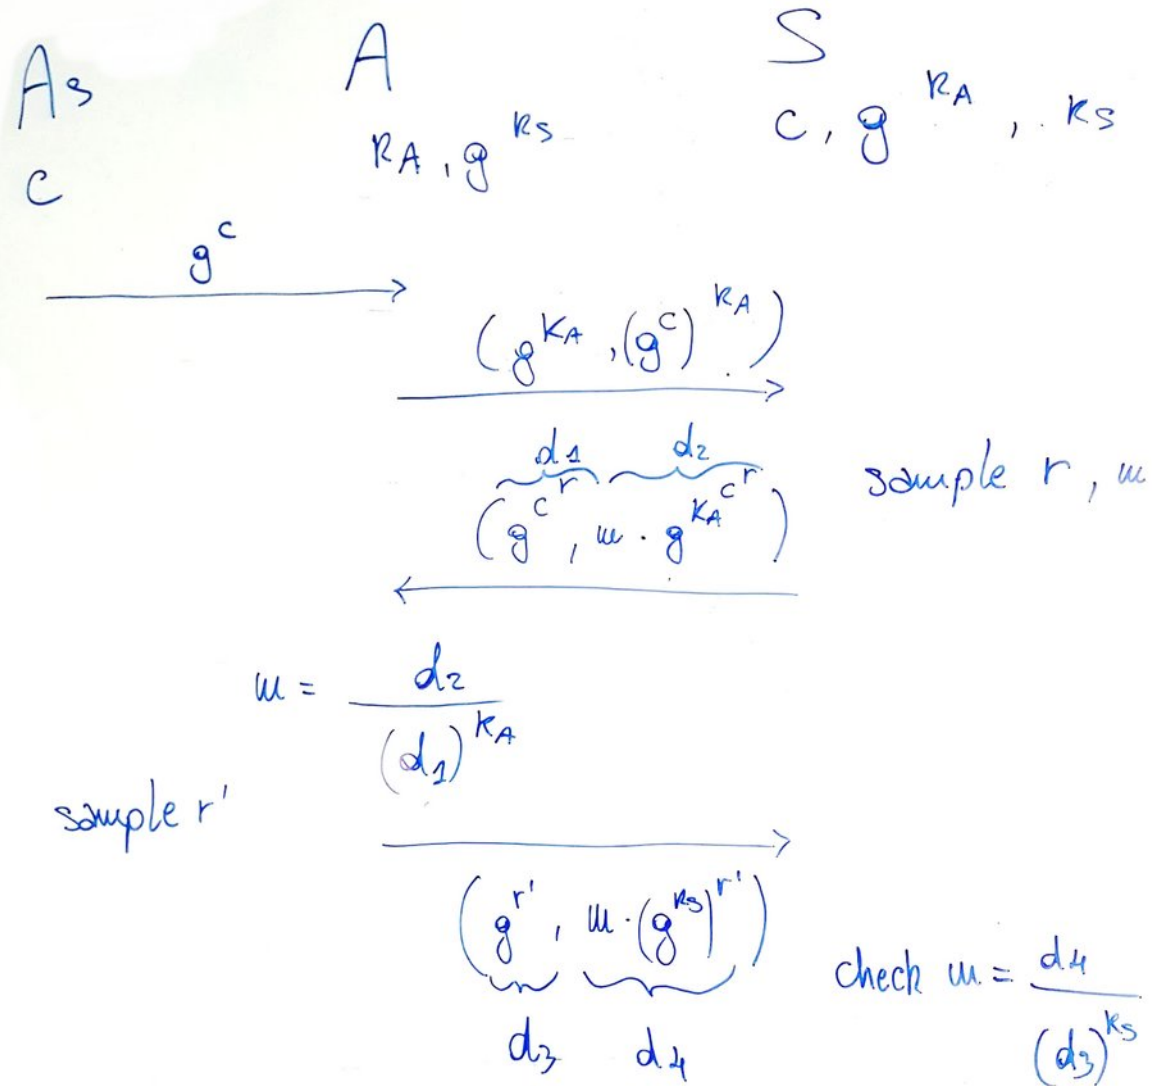 As A S
c k_A, g^{k_S} c, g^{k_A}, k_S
g^c
(g^{k_A}, (g^c)^{k_A})
d_1 d_2
(g^{c^r}, m · g^{k_A^{c^r}}) sample r, m
m = d_2 / (d_1)^{k_A}
sample r'
(g^{r'}, m · (g^{k_S})^{r'})
d_3 d_4
check m = d_4 / (d_3)^{k_S}